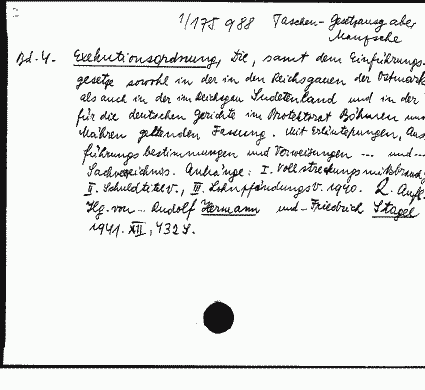 1/175 988 Taschen-Gesetzausg aber
Manzsche
Bd. 4. Exekutionsordnung, Die, samt dem Einführungs-
gesetze sowohl in der in den Reichsgauen der Ostmark
als auch in der im Reichsgau Sudetenland und in der
für die deutschen Gerichte im Protektorat Böhmen und
Mähren geltenden Fassung. Mit Erläuterungen, Aus
führungsbestimmungen und Verweisungen ... und
Sachverzeichnis. Anhänge: I. Vollstreckungsmissbrauchg
II. Schuldtitelv., III. Lohnpfändungsv. 1940. 2. Aufl.
Hg. von .. Rudolf Hermann und Friedrich Stagel
1941. XII, 432 S.